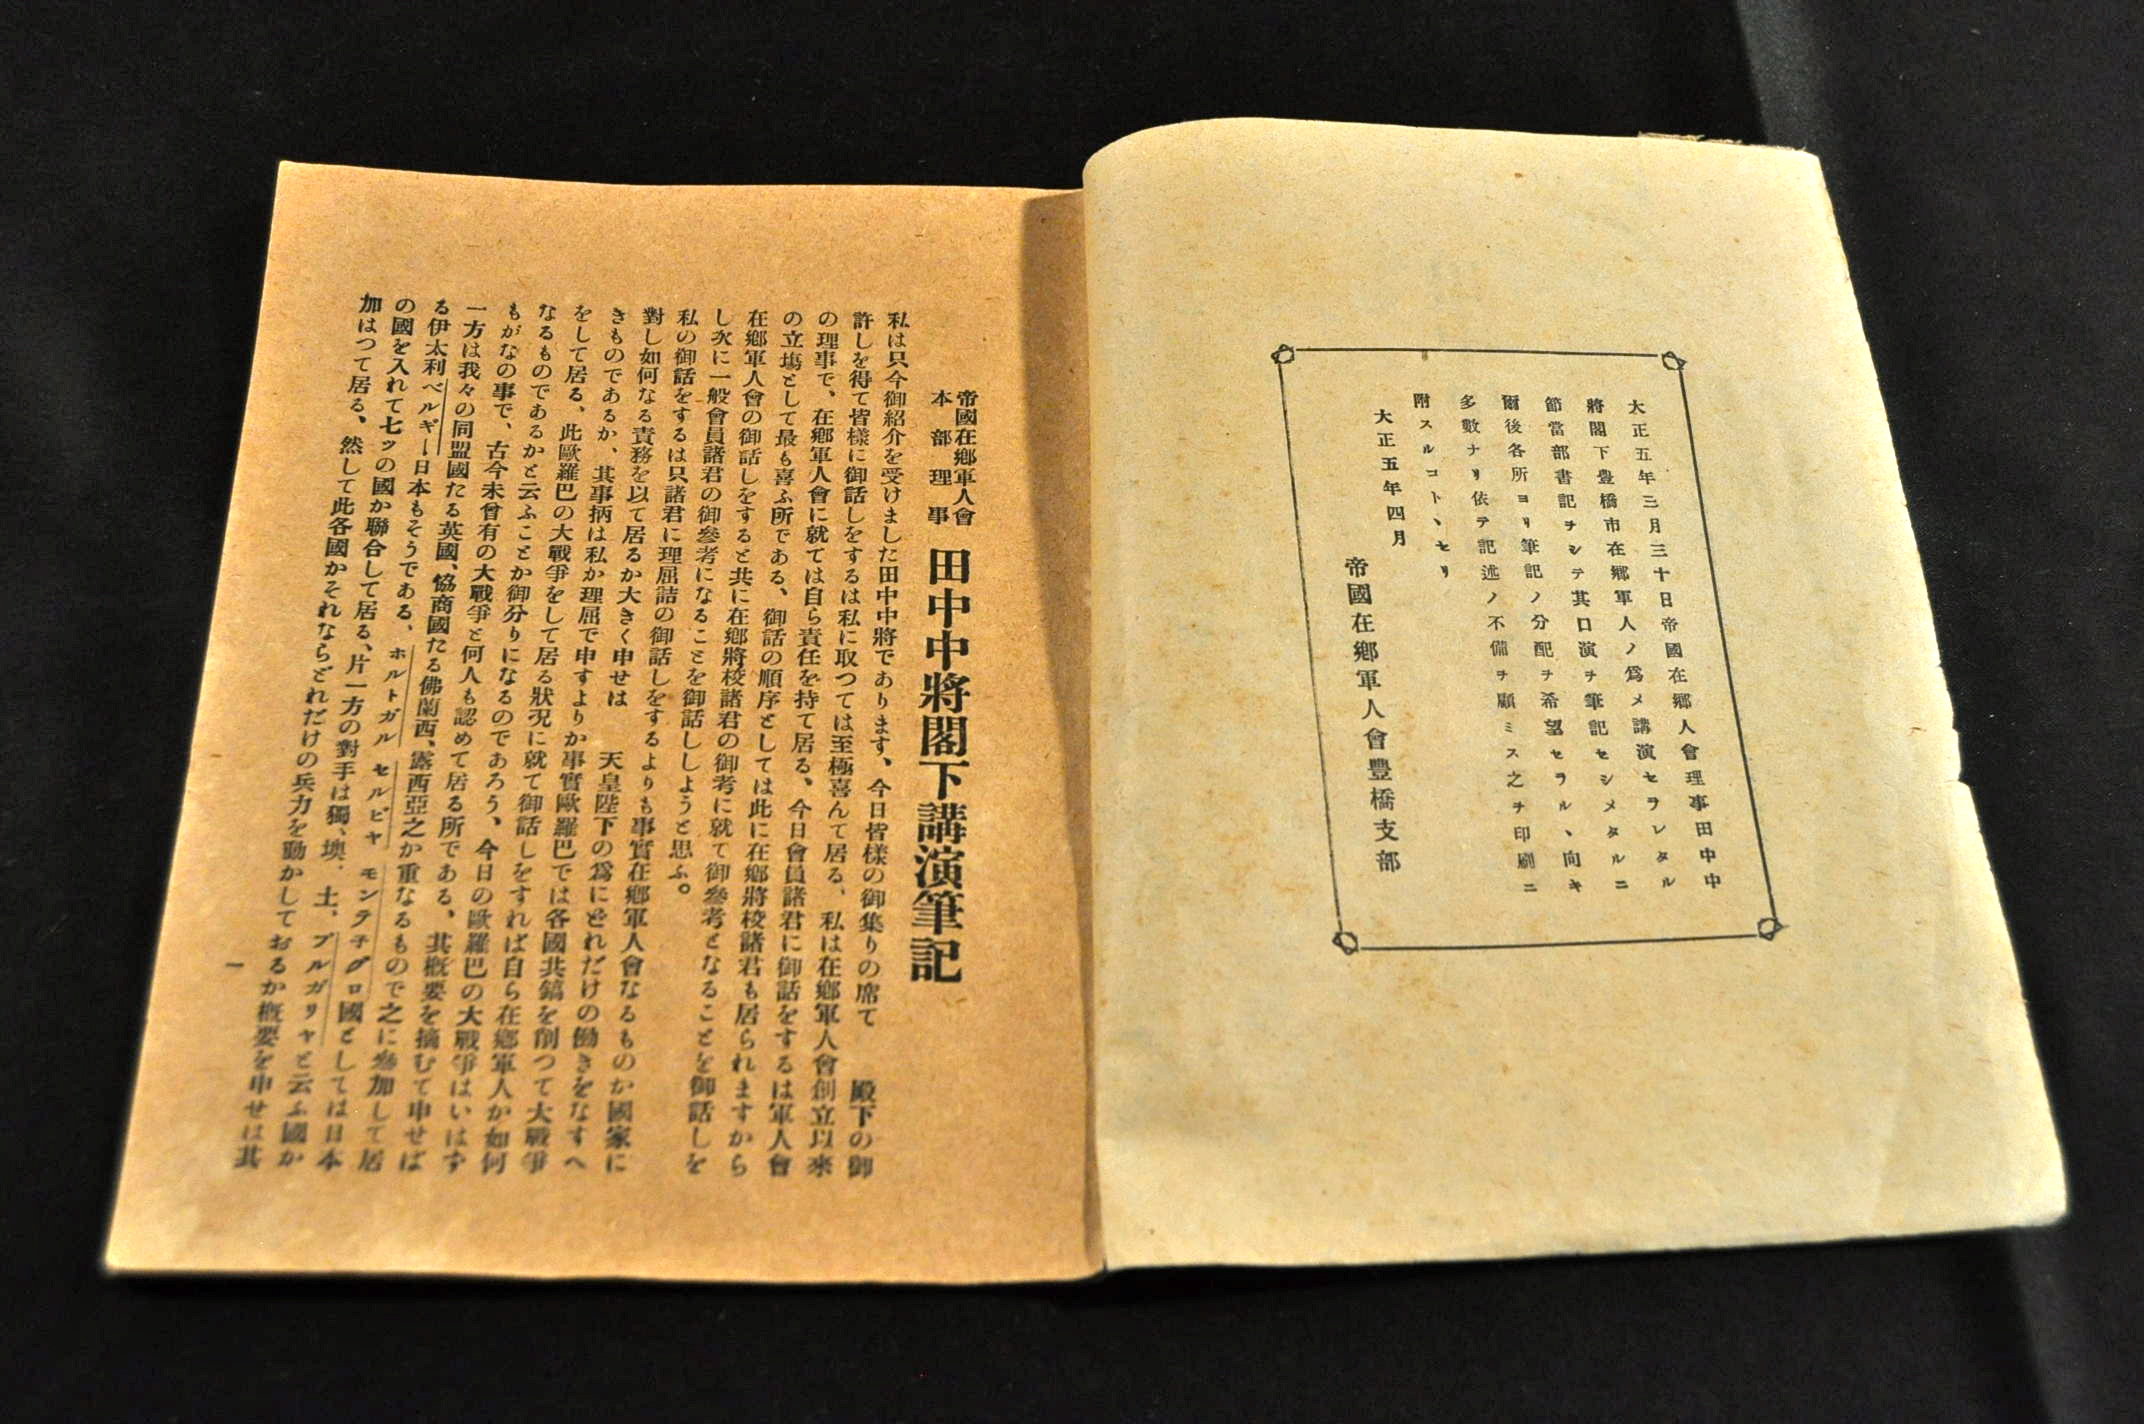 大正五年三月三十日帝國在鄉人會理事田中中
將閣下豊橋市在鄉軍人ノ爲メ講演セラレタル
節當部書記ヲシテ其口演ヲ筆記セシメタルニ
爾後各所ヨリ筆記ノ分配ヲ希望セラルヽ向キ
多數ナリ依テ記述ノ不備ヲ顧ミス之ヲ印刷ニ
附スルコトヽセリ
大正五年四月
帝國在鄉軍人會豊橋支部
帝國在鄉軍人會
本部理事
田中中將閣下講演筆記
私は只今御紹介を受けました田中中將であります、今日皆樣の御集りの席て　殿下の御
許しを得て皆樣に御話しをするは私に取つては至極喜んて居る、私は在鄉軍人會創立以來
の理事で、在鄉軍人會に就ては自ら責任を持て居る、今日會員諸君に御話をするは軍人會
の立塲として最も喜ふ所である、御話の順序としては此に在鄉將校諸君も居られますから
在鄉軍人會の御話しをすると共に在鄉將校諸君の御考に就て御參考となることを御話しを
し次に一般會員諸君の御參考になることを御話ししようと思ふ。
私の御話をするは只諸君に理屈詰の御話しをするよりも事實在鄉軍人會なるものか國家に
對し如何なる責務を以て居るか大きく申せは　天皇陛下の爲にどれだけの働きをなすへ
きものであるか、其事柄は私か理屈で申すよりか事實歐羅巴では各國共鎬を削つて大戰爭
をして居る、此歐羅巴の大戰爭をして居る狀況に就て御話しをすれば自ら在鄉軍人か如何
なるものであるかと云ふことか御分りになるのであろう、今日の歐羅巴の大戰爭はいはず
もがなの事で、古今未曾有の大戰爭と何人も認めて居る所である、其概要を摘むて申せば
一方は我々の同盟國たる英國、協商國たる佛蘭西、露西亞之か重なるもので之に參加して居
る伊太利ベルギー日本もそうである、ホルトガル セルビヤ モンテネグロ國としては日本
の國を入れて七ッの國か聯合して居る、片一方の對手は獨、墺、土、ブルガリヤと云ふ國か
加はつて居る、然して此各國かそれならどれだけの兵力を動かしておるか概要を申せは其
一